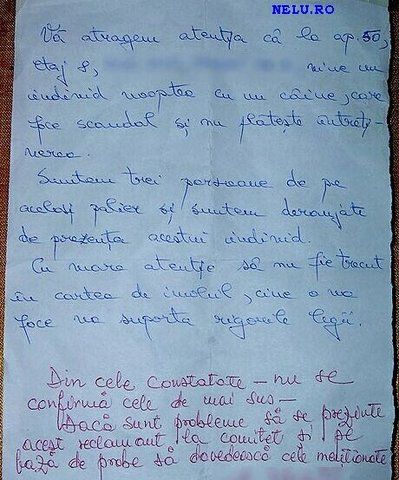 NELU.RO
Vă atragem atenția că la ap. 50,
etaj 8, vine un
individ noaptea cu un câine, care
face scandal și nu plătește întreți-
nerea.
Suntem trei persoane de pe
același palier și suntem deranjate
de prezența acestui individ.
Cu mare atenție să nu fie trecut
în cartea de imobil, cine o va
face va suporta rigorile legii.
Din cele constatate - nu se
confirmă cele de mai sus -
Dacă sunt probleme să se prezinte
acest reclamant la comitet și pe
bază de probe să dovedească cele menționate